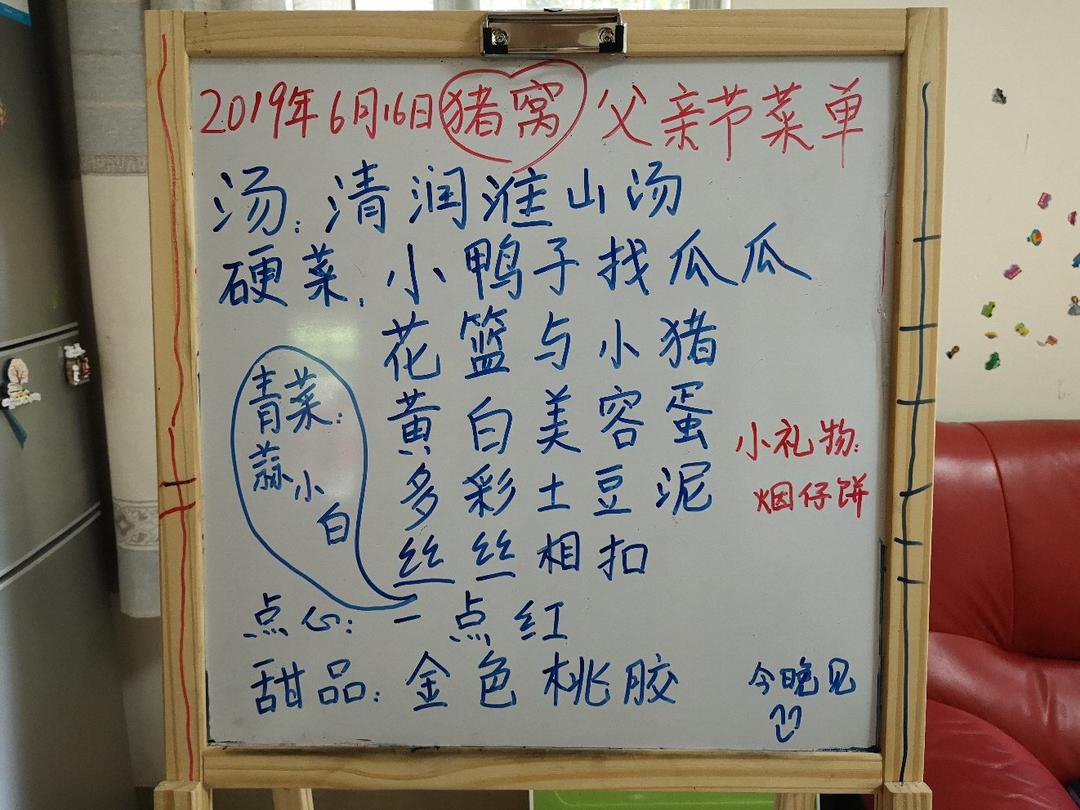 2019年6月16日猪窝 父亲节菜单
汤:清润淮山汤
硬菜:小鸭子找瓜瓜
花篮与小猪
黄白美容蛋
多彩土豆泥
丝丝相扣
青菜:
蒜小
白
小礼物:
烟仔饼
点心:一点红
甜品:金色桃胶
今晚见